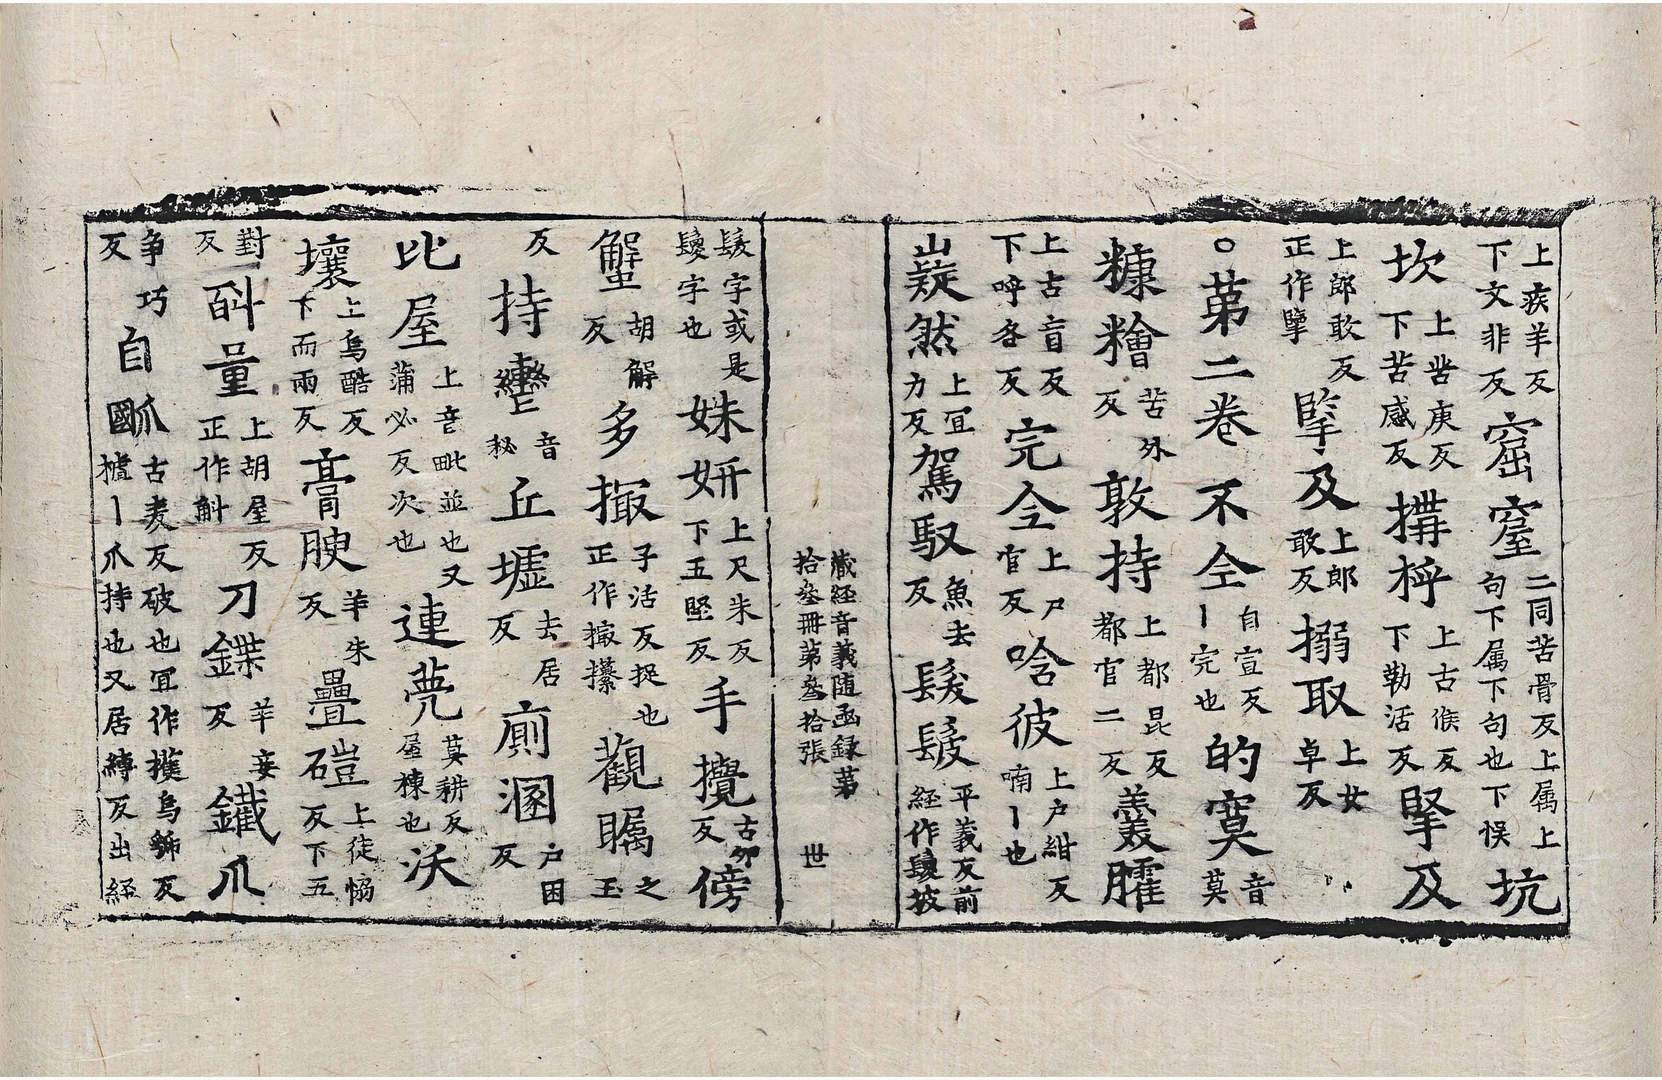 上疾羊反下文非反窟窒二同苦骨反上属上句下属下句也下悮坑
坎上苦庚反下苦感反搆捋上古侯反下勒活反掔及
上郎敢反正作擥掔及上郎敢反搦取上女卓反
○第二卷不仝自宣反丨完也的寞音莫
糠糩苦外反敦持上都昆反都官二反羹臛
上古盲反下呼各反完仝上戸官反唅彼上户紺反喃丨也
嶷然上冝力反駕馭魚去反髲髲平義反前経作鬘披
藏経音義随函録第
拾叄冊第叄拾張 世
髲字或是鬘字也姝妍上尺朱反下五堅反手攪古夘反傍
蟹胡解反多撮子活反捉也正作撮攥觀矚之玉
反持轡上音秘丘墟去居反廁溷户困反
比屋上音毗並也又蒲必反次也連甍莫耕反屋棟也沃
壤上烏酷反下而兩反膏腴羊朱反疊磑上徒恊反下五
對反㪷量上胡屋反正作斛刀鍱羊妾反鐵爪
爭巧反自㼌古麦反破也冝作擭烏虢反國樝丨爪持也又居縛反出経